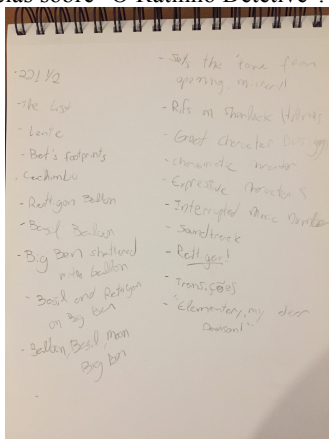 - 221 1/2
- The List
- Bat's footprints
- Rattigan Balloon
- Basil Balloon
- Big Ben shattered
with balloon
- Basil and Ratigan
on Big Ben
- Balloon, Basil, Moon
Big Ben
- Sets the tone from
opening moment
- Riffs on Sherlock Holmes
- Great character
- charismatic
- Expressive characters
- Interrupted
- Soundtrack
- Rattigan!
- Transições
- "Elementary, my dear
Dawson!"